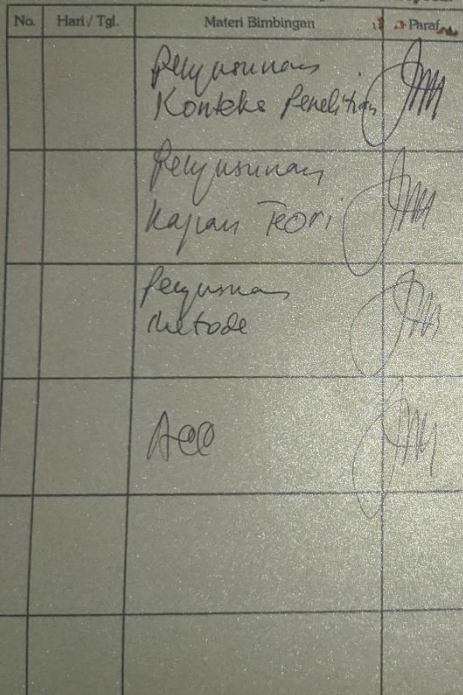 No. Hari / Tgl. Materi Bimbingan Paraf
Penyusunan
Konteks Penelitian
Penyusunan
Kajian Teori
Penyusunan
Metode
Acc